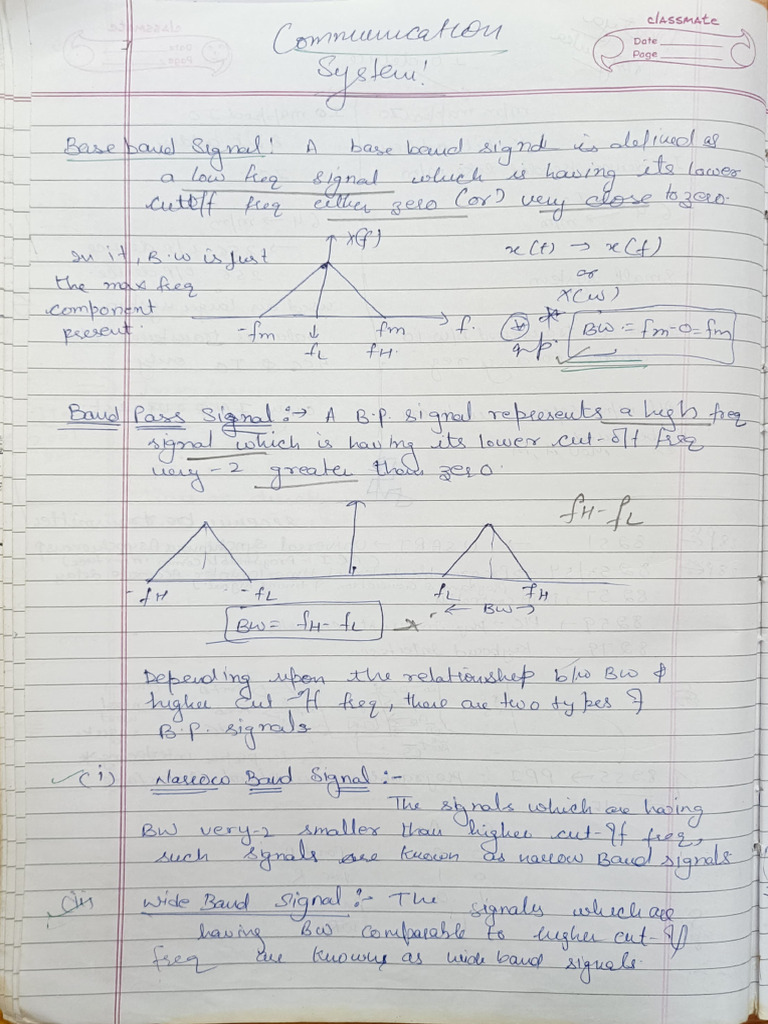 classmate
Date
Page
Communication
System!
Base band Signal! A base band signal is defined as
a low freq signal which is having its lower
cutoff freq either zero (or) very close to zero.
In it, B.W is just
the max freq
component
present.
x(f)
-fm
↓
fL
fm
fH.
f.
x(t) → x(f)
or
X(w)
BW = fm-0 = fm
Band Pass Signal :→ A B.P. signal represents a high freq
signal which is having its lower cut-off freq
very-2 greater than zero.
fH-fL
-fH
-fL
fL
fH
← BW →
BW = fH - fL
Depending upon the relationship b/w BW &
higher cut-off freq, there are two types of
B.P. signals
(i) Narrow Band Signal :-
The signals which are having
BW very-2 smaller than higher cut-off freq,
such signals are known as narrow Band signals
(ii) Wide Band Signal :- The signals which are
having BW comparable to higher cut-off
freq are known as wide band signals.